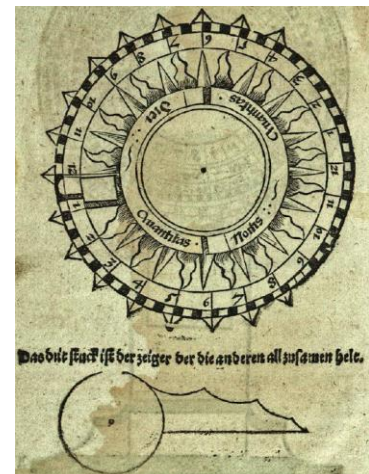 Quantitas Diei
Quantitas Noctis
12
1
2
3
4
5
6
7
8
9
10
11
12
Das drit stuck ist der zeiger der die anderen all zusamen helt.